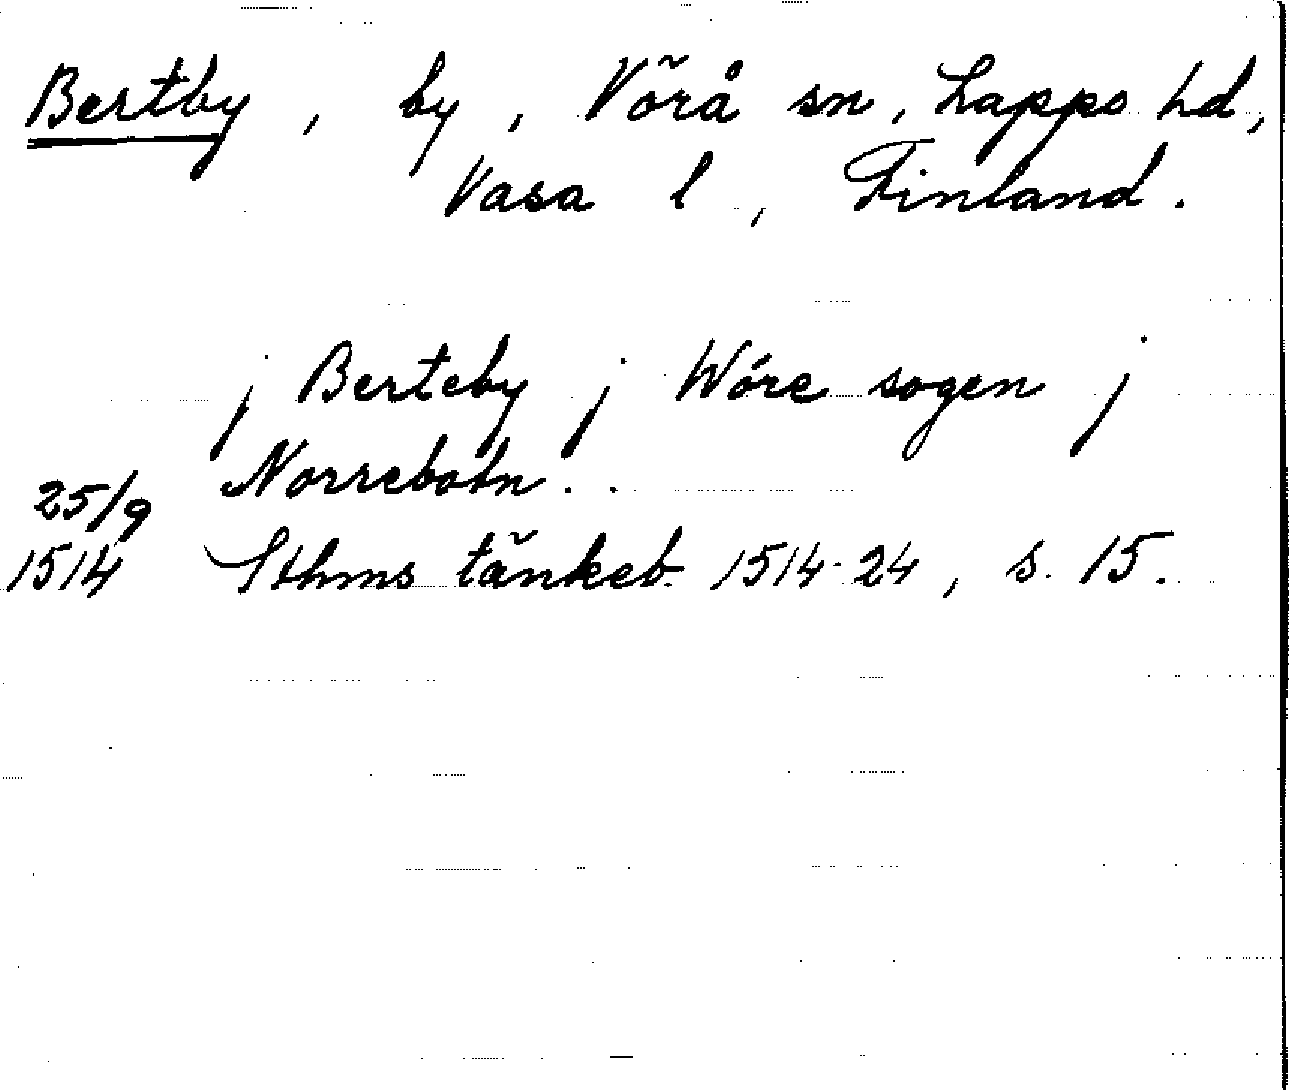 Bertby, by, Vörå sn, Lappo hd,
Vasa l, Finland.
j Berteby j Wóre sogen j
Norrebotn..
25/9
1514 Sthms tänkeb. 1514-24, s. 15.